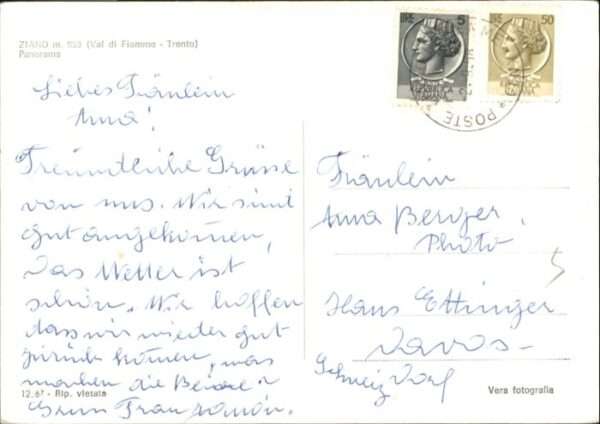 ZIANO m. 953 (Val di Fiemme - Trento)
Panorama
Liebes Fräulein
Anna!
Freundliche Grüsse
von uns. Wir sind
gut angekommen,
das Wetter ist
schön. Wir hoffen
dass wir wieder gut
zurück kommen, was
machen die Beiden
12.67 - Rip. vietata
5
50
POSTE
Fräulein
Anna Berger,
Photo
Hans Ettinger
Davos-
Schweiz Dorf
5
Vera fotografia